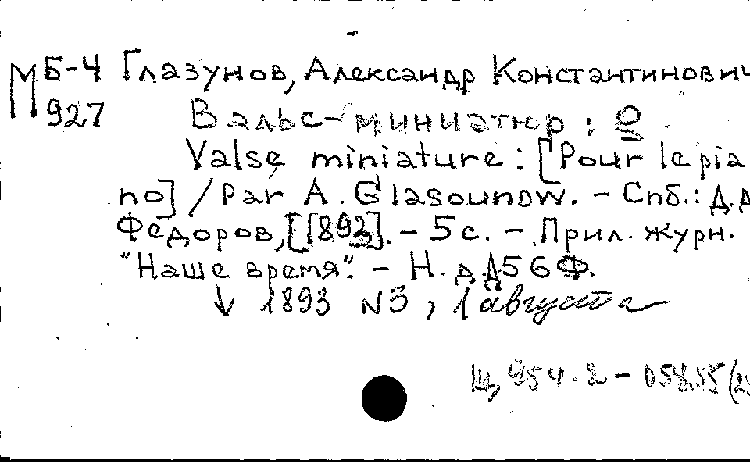 М Б-4 Глазунов, Александр Константинович
927 Вальс-миниатюр : o
Valse miniature : [Pour le pia
no] / Par A. Glasounow. - Спб.: Д.Д.
Федоров, [1893]. - 5 с. - Прил. журн.
"Наше время". - Н. д. Д56Ф.
↓ 1893 N3, 1 августа